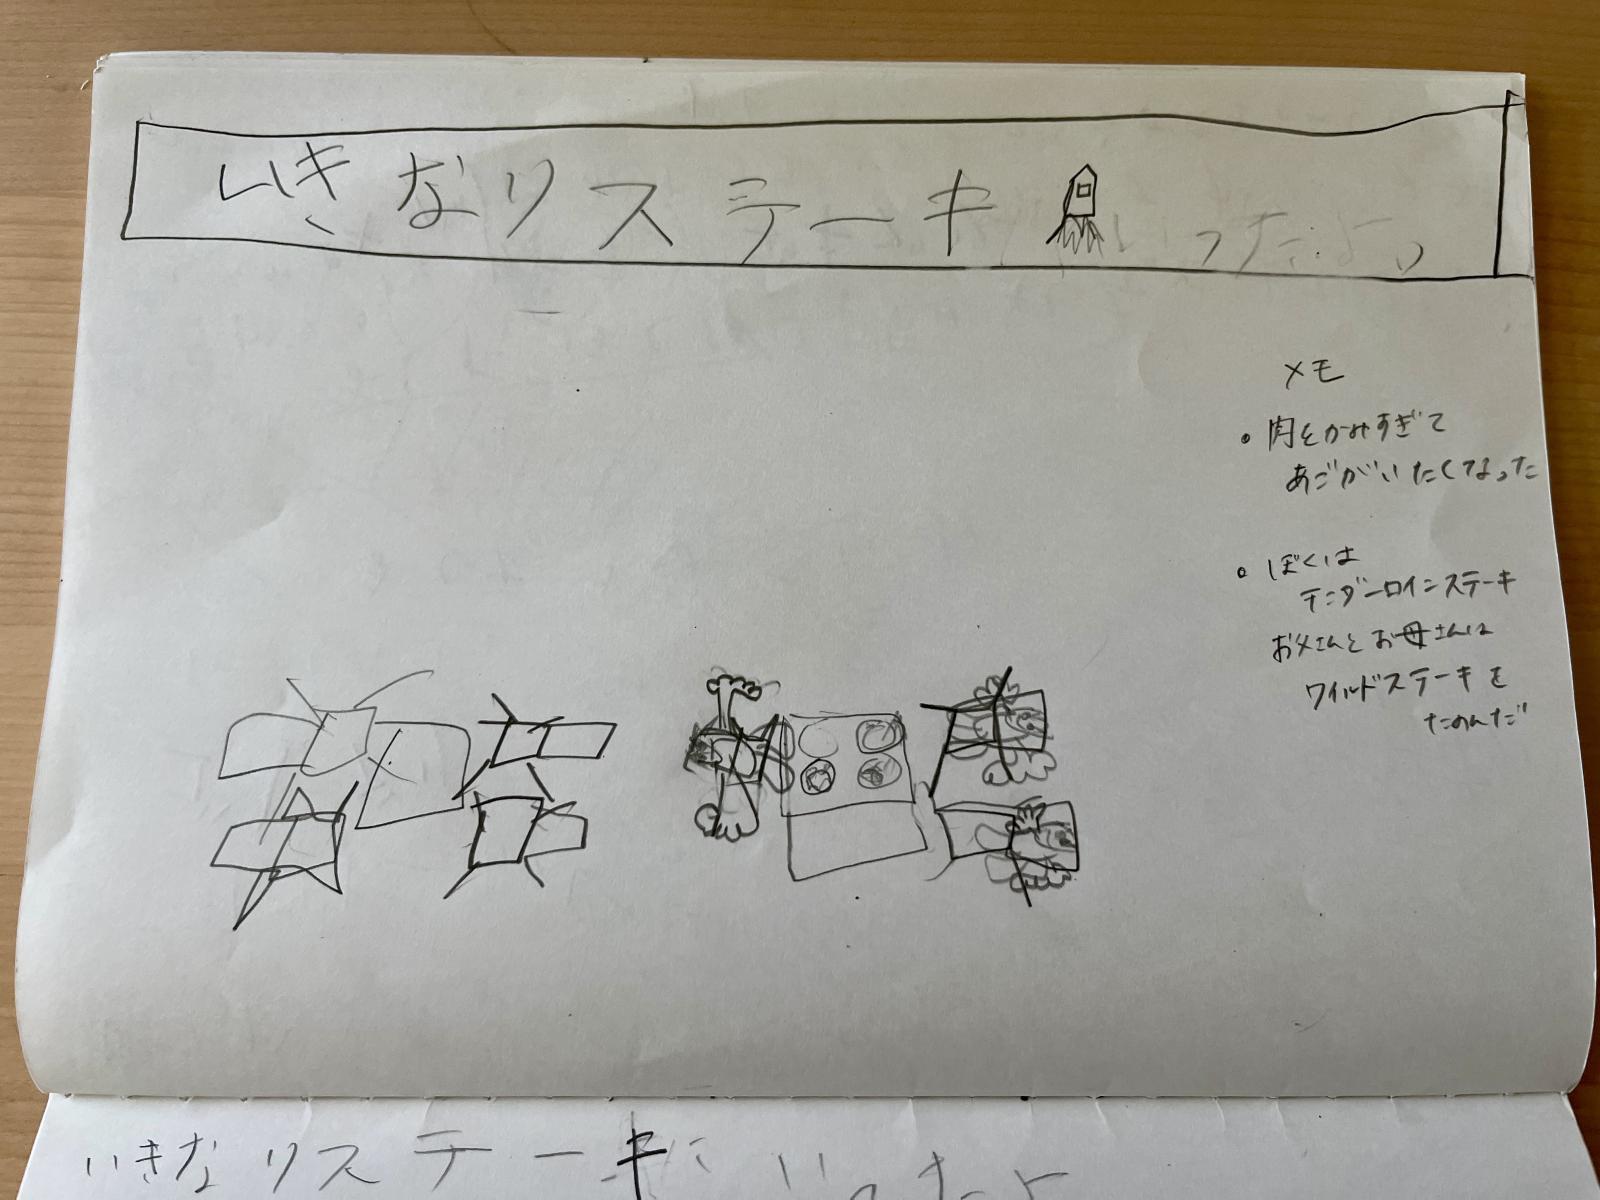 いきなりステーキ いったよ。
メモ
・肉をかみすぎて
あごがいたくなった
・ぼくは
テンダーロインステーキ
お父さんとお母さんは
ワイルドステーキを
たのんだ
いきなりステーキにいったよ